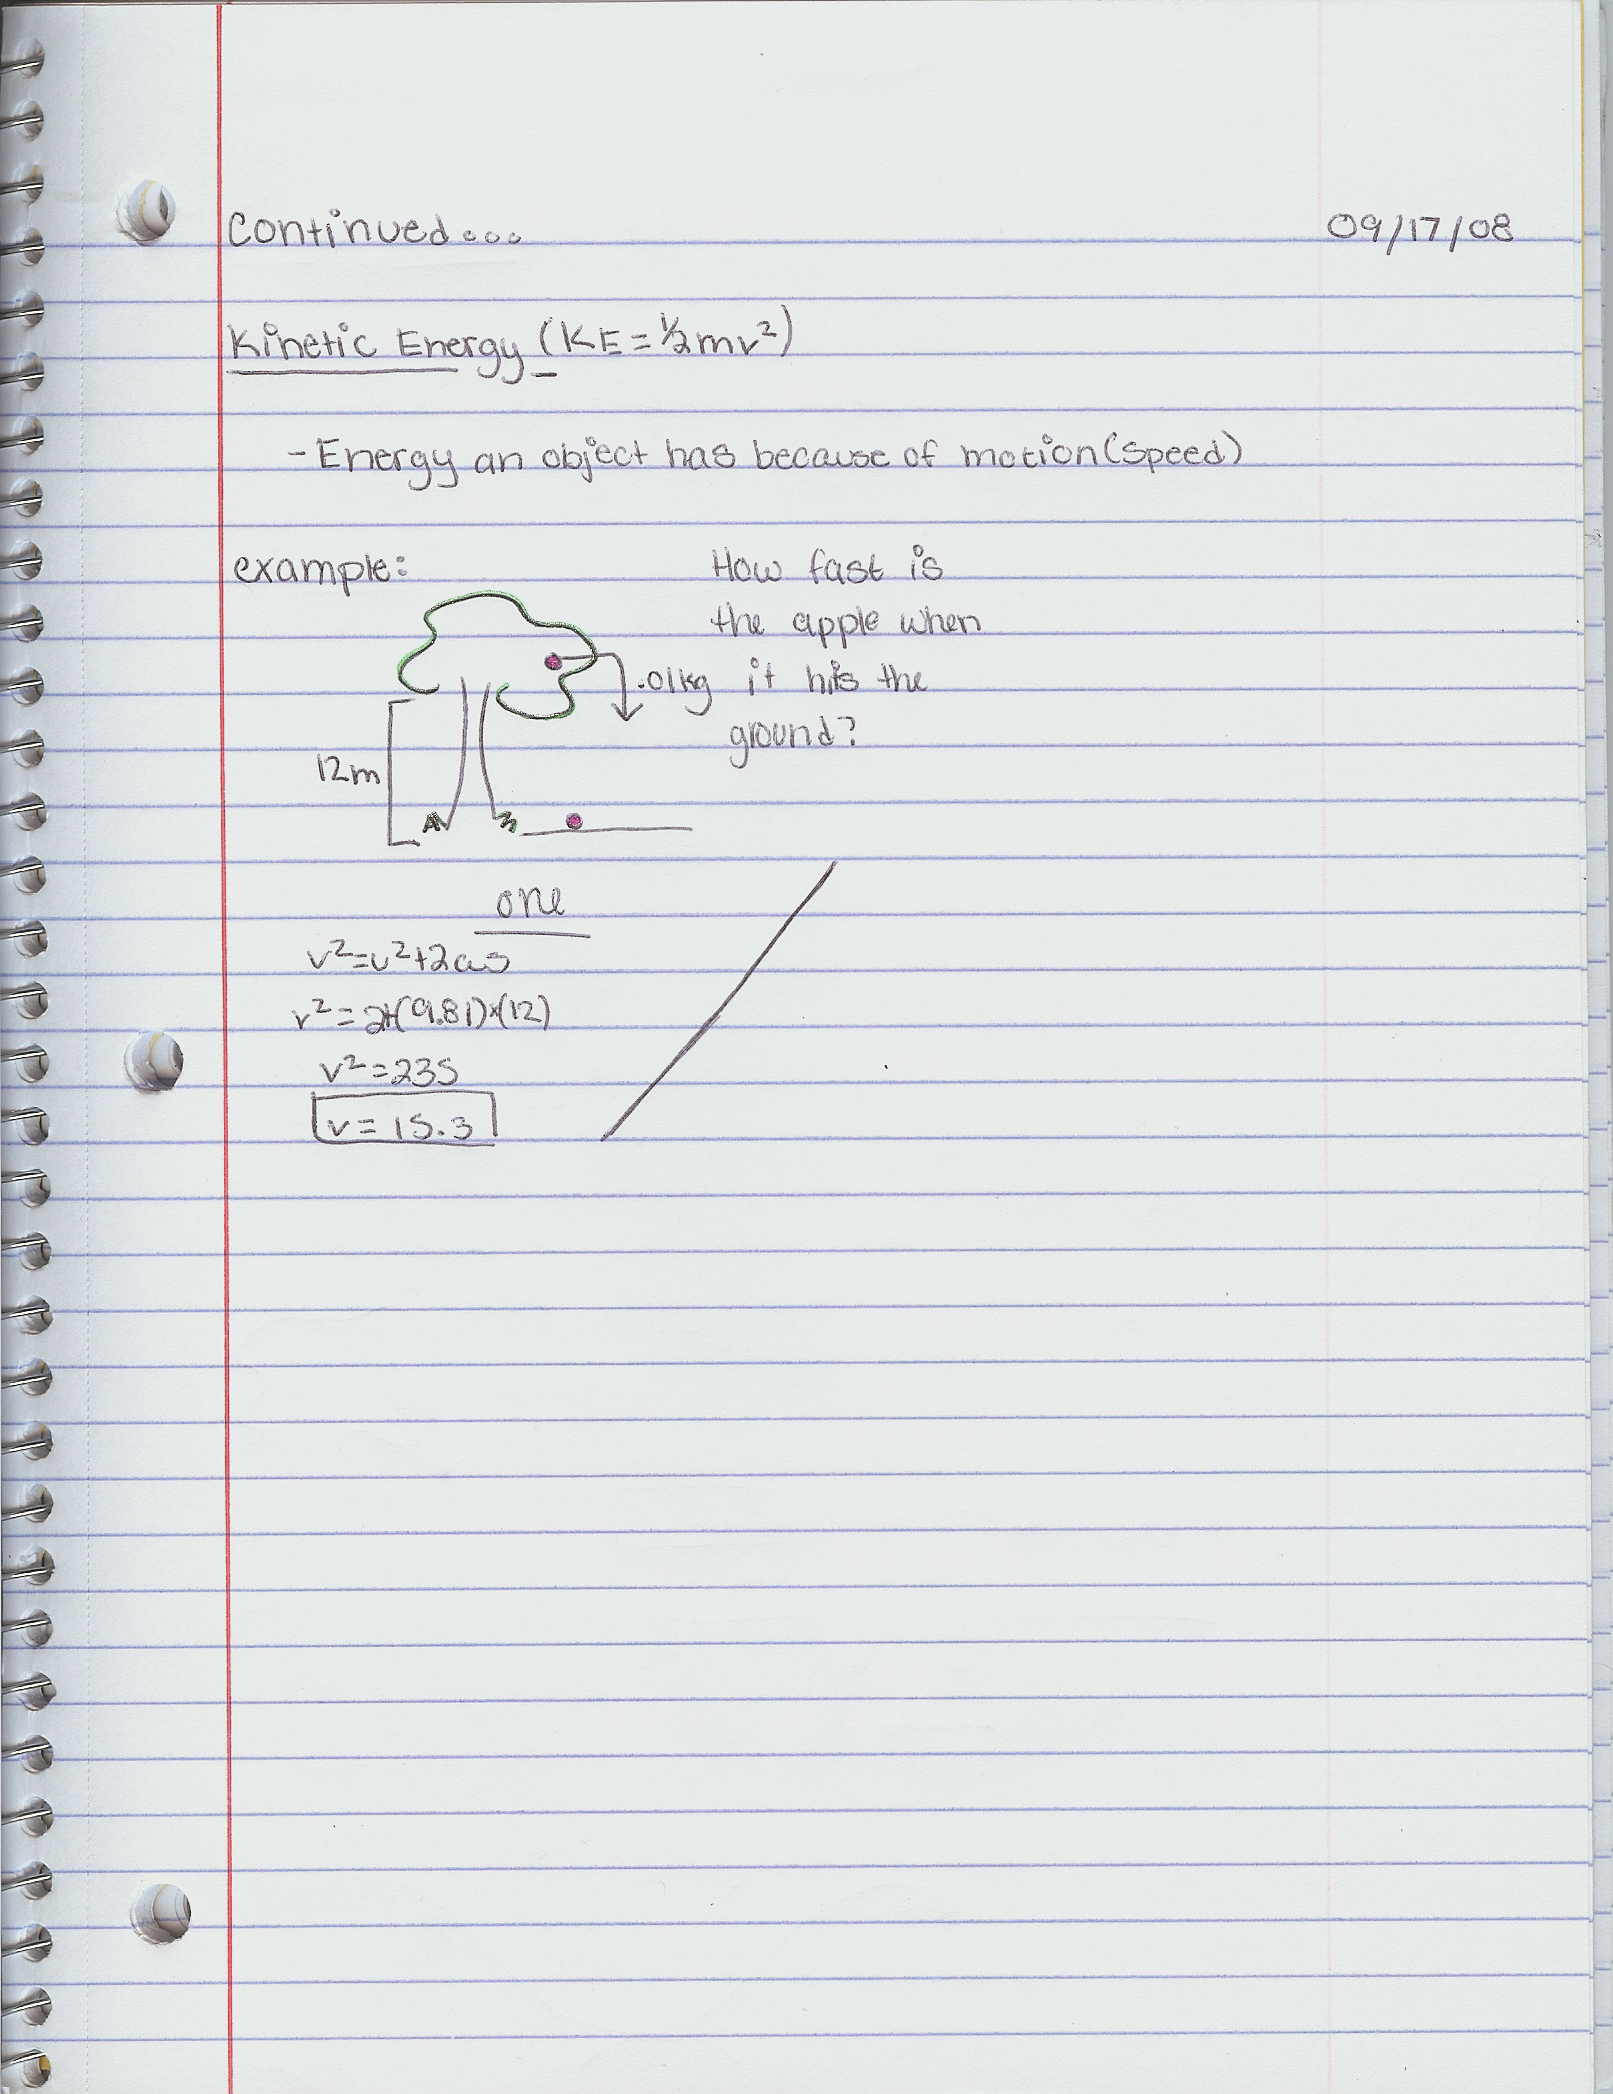 Continued...
09/17/08
Kinetic Energy (KE = ½mv²)
- Energy an object has because of motion (speed)
example:
How fast is
the apple when
.01kg
it hits the
ground?
12m
one
v²=u²+2as
v² = 2*(9.81)*(12)
v² = 235
v = 15.3